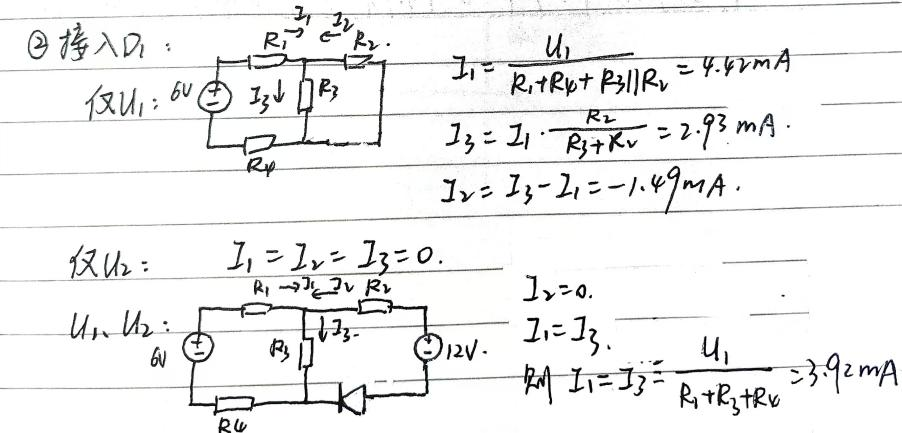 ② 接入D₁:
R₁ →I₁ ←I₂ R₂.
仅U₁: 6V I₃↓ R₃
R₄
I₁ = U₁ / (R₁+R₄+R₃||R₂) = 4.42mA
I₃ = I₁ · R₂ / (R₃+R₂) = 2.93 mA.
I₂ = I₃ - I₁ = -1.49mA.
仅U₂: I₁ = I₂ = I₃ = 0.
R₁ →I₁ ←I₂ R₂
U₁、U₂: 6V R₃ ↓I₃. 12V.
R₄
I₂=0.
I₁=I₃.
则 I₁=I₃= U₁ / (R₁+R₃+R₄) =3.92mA